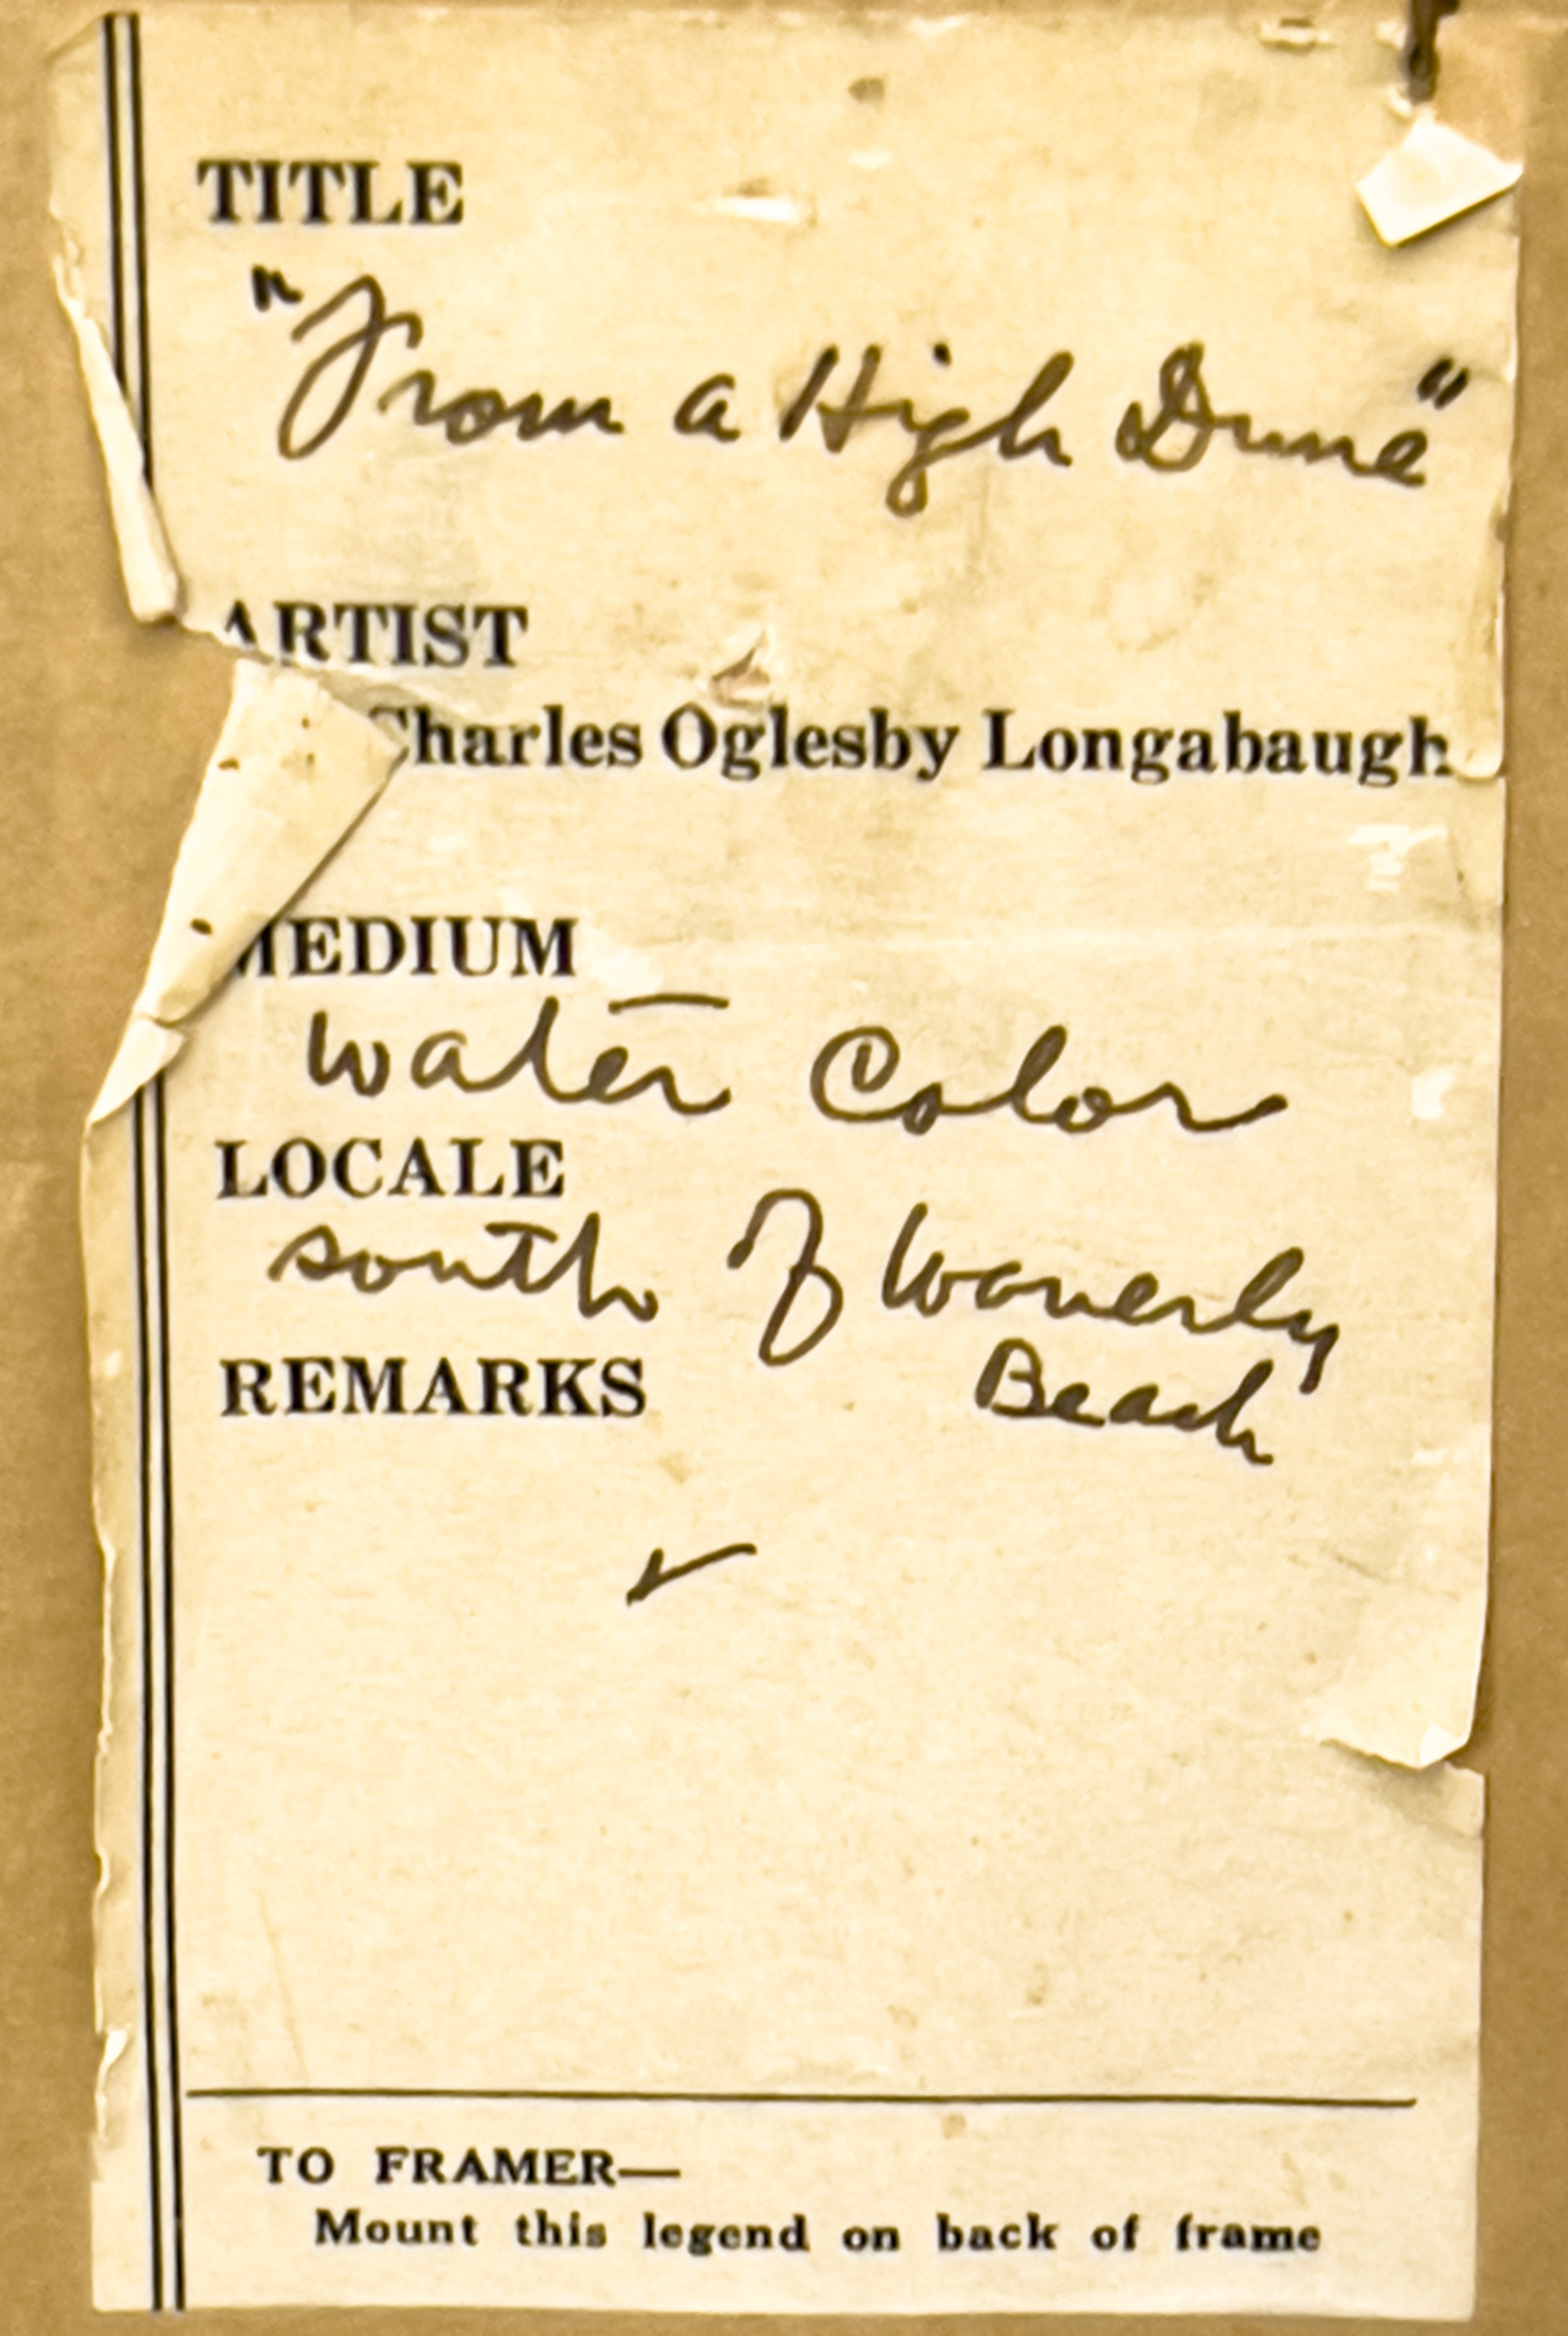 TITLE
"From a High Dune"
ARTIST
Charles Oglesby Longabaugh
MEDIUM
Water Color
LOCALE
south of Waverly
Beach
REMARKS
✓
TO FRAMER—
Mount this legend on back of frame